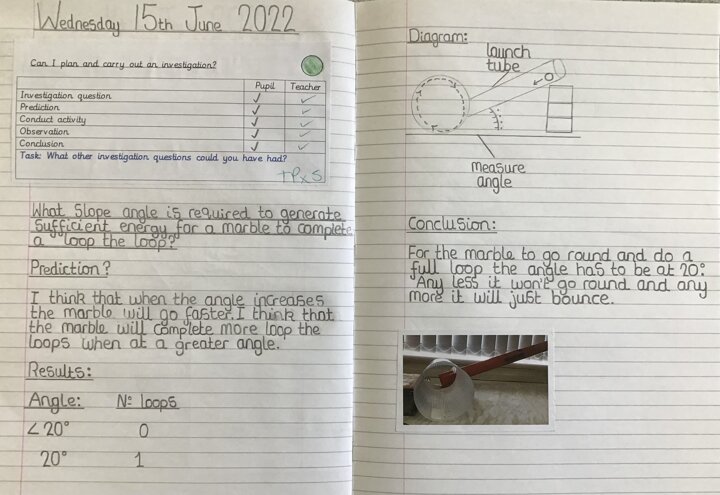 Wednesday 15th June 2022
Can I plan and carry out an investigation?
Pupil Teacher
Investigation question ✓ ✓
Prediction ✓ ✓
Conduct activity ✓ ✓
Observation ✓ ✓
Conclusion ✓ ✓
Task: What other investigation questions could you have had?
What slope angle is required to generate
sufficient energy for a marble to complete
a "loop the loop?
Prediction?
I think that when the angle increases
the marble will go faster. I think that
the marble will complete more loop the
loops when at a greater angle.
Results:
Angle: Nº loops
<20° 0
20° 1
Diagram:
launch
tube
measure
angle
Conclusion:
For the marble to go round and do a
full loop the angle has to be at 20°.
Any less it won't go round and any
more it will just bounce.